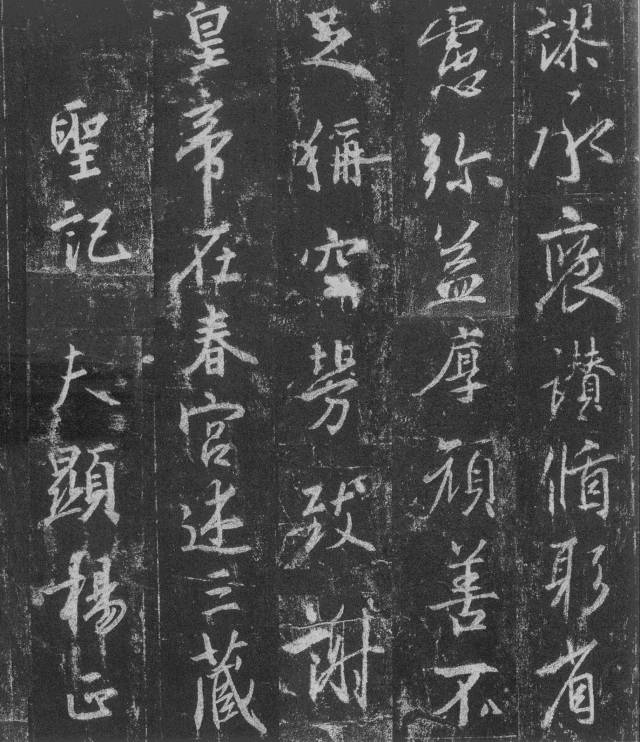 謬承褒讚循躬省
慮弥益厚顏善不
足稱空勞致謝
皇帝在春宮述三藏
聖記　夫顯揚正